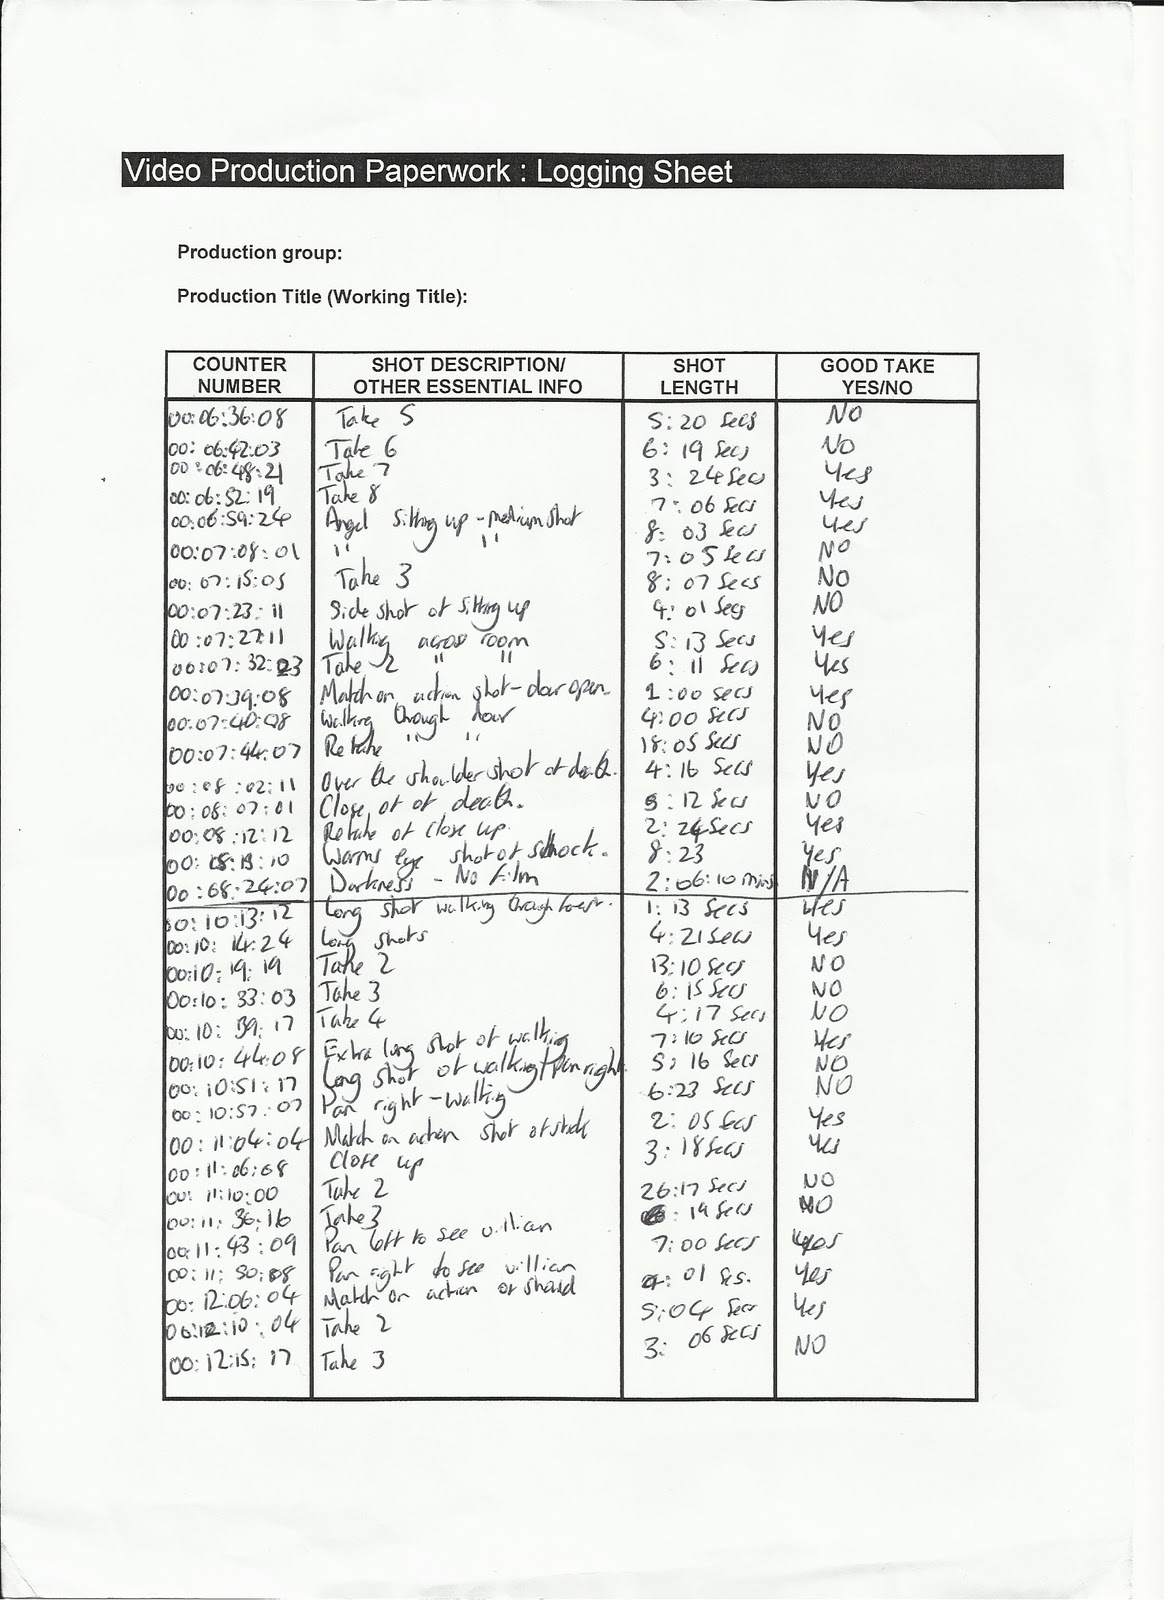 Video Production Paperwork : Logging Sheet
Production group:
Production Title (Working Title):
COUNTER NUMBER SHOT DESCRIPTION/ OTHER ESSENTIAL INFO SHOT LENGTH GOOD TAKE YES/NO
00:06:36:08 Take 5 5:20 Secs NO
00:06:42:03 Take 6 6:19 Secs NO
00:06:48:21 Take 7 3:24 Secs Yes
00:06:52:19 Take 8 7:06 Secs Yes
00:06:59:24 Angel Sitting up - medium shot 8:03 Secs Yes
00:07:08:01 " " 7:05 Secs NO
00:07:15:05 Take 3 8:07 Secs NO
00:07:23:11 Side shot of sitting up 4:01 Secs NO
00:07:27:11 Walking across room 5:13 Secs Yes
00:07:32:23 Take 2 " " 6:11 Secs Yes
00:07:39:08 Match on action shot - door open. 1:00 Secs Yes
00:07:40:08 Walking through door 4:00 Secs NO
00:07:44:07 Retake " " 18:05 Secs NO
00:08:02:11 Over the shoulder shot of death. 4:16 Secs Yes
00:08:07:01 Close of of death. 5:12 Secs NO
00:08:12:12 Retake of close up. 2:24 Secs Yes
00:08:15:10 Worms eye shot of shock. 8:23 Yes
00:08:24:07 Darkness - No Film 2:06:10 mins N/A
00:10:13:12 Long shot walking through forest. 1:13 Secs Yes
00:10:14:24 Long shots 4:21 Secs Yes
00:10:19:19 Take 2 13:10 Secs NO
00:10:33:03 Take 3 6:15 Secs NO
00:10:39:17 Take 4 4:17 Secs NO
00:10:44:08 Extra long shot of walking 7:10 Secs Yes
00:10:51:17 Long shot of walking/Pan right. 5:16 Secs NO
00:10:57:07 Pan right - Walking 6:23 Secs NO
00:11:04:04 Match on action shot of stick 2:05 Secs Yes
00:11:06:08 Close up 3:18 Secs Yes
00:11:10:00 Take 2 26:17 Secs NO
00:11:36:16 Take 3 :19 Secs NO
00:11:43:09 Pan left to see villian 7:00 Secs Yes
00:11:50:08 Pan right to see villian :01 Ses. Yes
00:12:06:04 Match on action of 5:04 Secs Yes
00:12:10:04 Take 2 3:06 Secs NO
00:12:15:17 Take 3